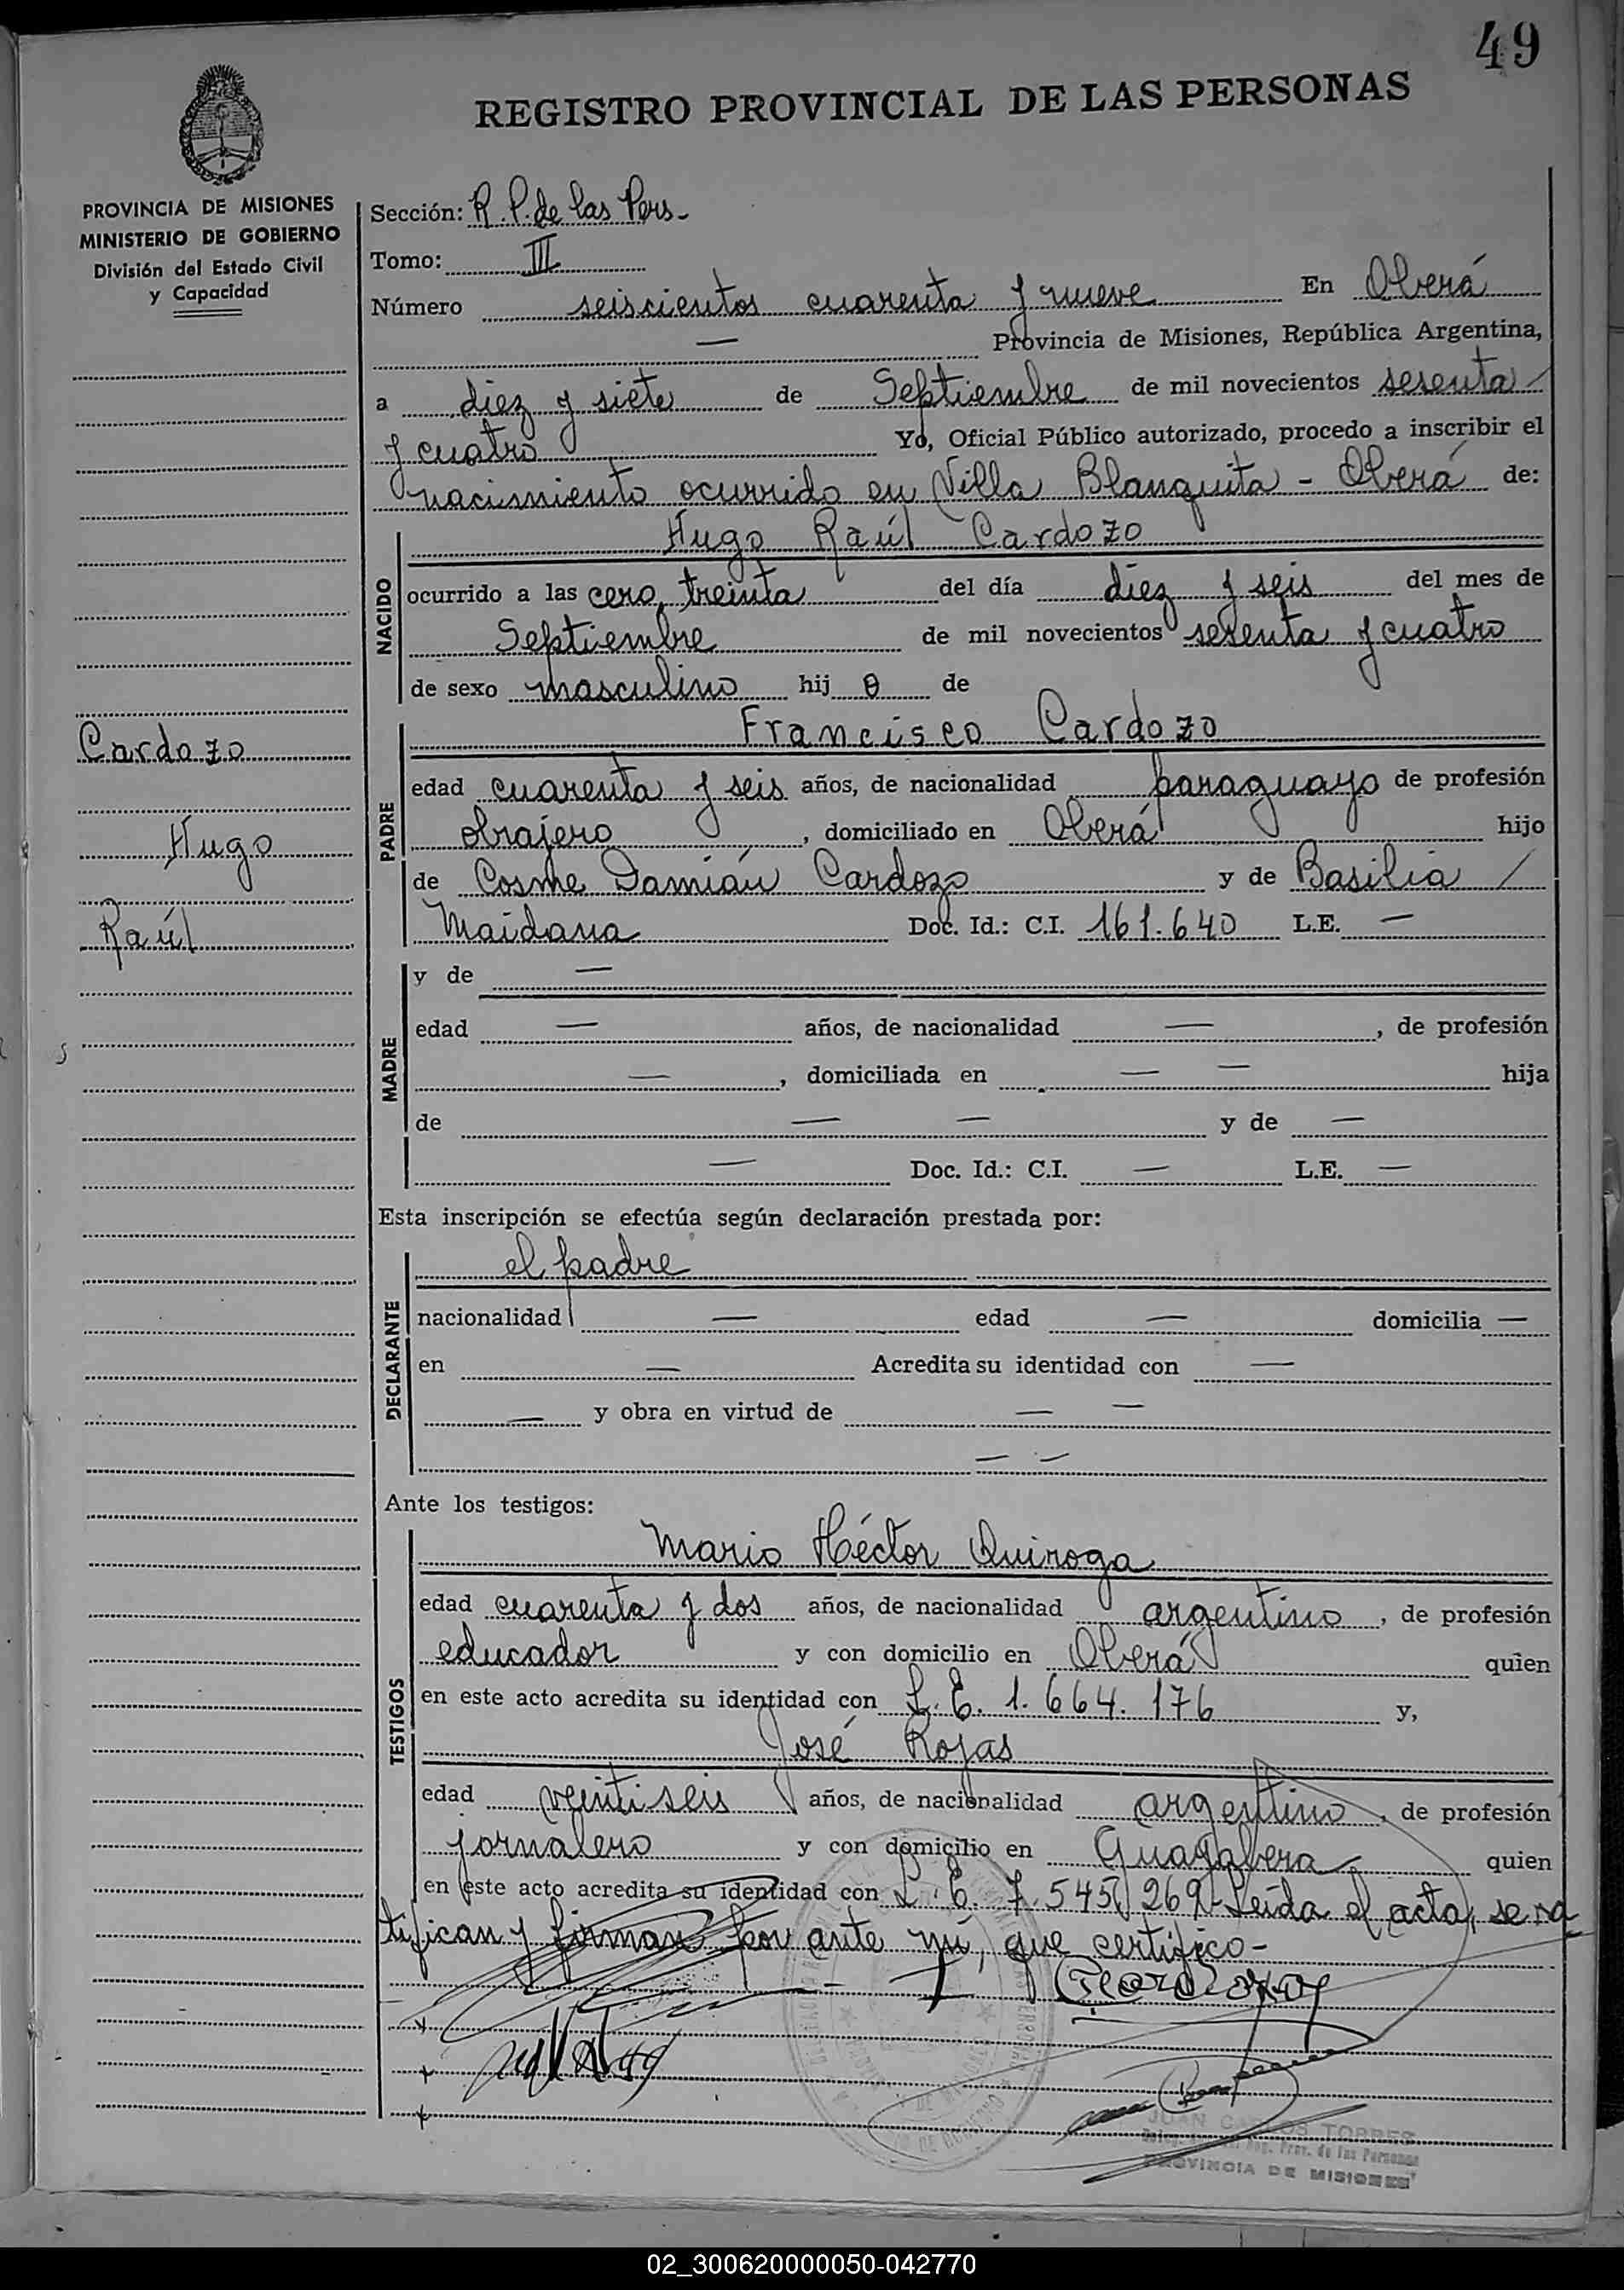 49
REGISTRO PROVINCIAL DE LAS PERSONAS
PROVINCIA DE MISIONES
MINISTERIO DE GOBIERNO
División del Estado Civil
y Capacidad
Sección: R. P. de las Pers-
Tomo: III
Número seiscientos cuarenta y nueve En Oberá
— Provincia de Misiones, República Argentina,
a diez y siete de Septiembre de mil novecientos sesenta /
y cuatro Yo, Oficial Público autorizado, procedo a inscribir el
nacimiento ocurrido en Villa Blanquita - Oberá de:
NACIDO
Hugo Raúl Cardozo
ocurrido a las cero, treinta del día diez y seis del mes de
Septiembre de mil novecientos sesenta y cuatro
de sexo masculino hij o de
Cardozo
Hugo
Raúl
PADRE
Francisco Cardozo
edad cuarenta y seis años, de nacionalidad paraguayo de profesión
obrajero, domiciliado en Oberá hijo
de Cosme Damián Cardozo y de Basilia /
Maidana Doc. Id.: C.I. 161.640 L.E. —
MADRE
y de —
edad — años, de nacionalidad —, de profesión
—, domiciliada en — — hija
de — — y de —
— Doc. Id.: C.I. — L.E. —
Esta inscripción se efectúa según declaración prestada por:
DECLARANTE
el padre
nacionalidad — edad — domicilia —
en — Acredita su identidad con —
— y obra en virtud de — —
— —
Ante los testigos:
TESTIGOS
Mario Héctor Quiroga
edad cuarenta y dos años, de nacionalidad argentino, de profesión
educador y con domicilio en Oberá quien
en este acto acredita su identidad con L. E. 1.664.176 y,
José Rojas
edad veintiseis años, de nacionalidad argentino, de profesión
jornalero y con domicilio en quien
en este acto acredita su identidad con L. E. 7.545.269- Leída el acta, se ra
tifican y firman por ante mí, que certifico-
JUAN CARLOS TORRES
Reg. Prov. de las Personas
PROVINCIA DE MISIONES
02_300620000050-042770